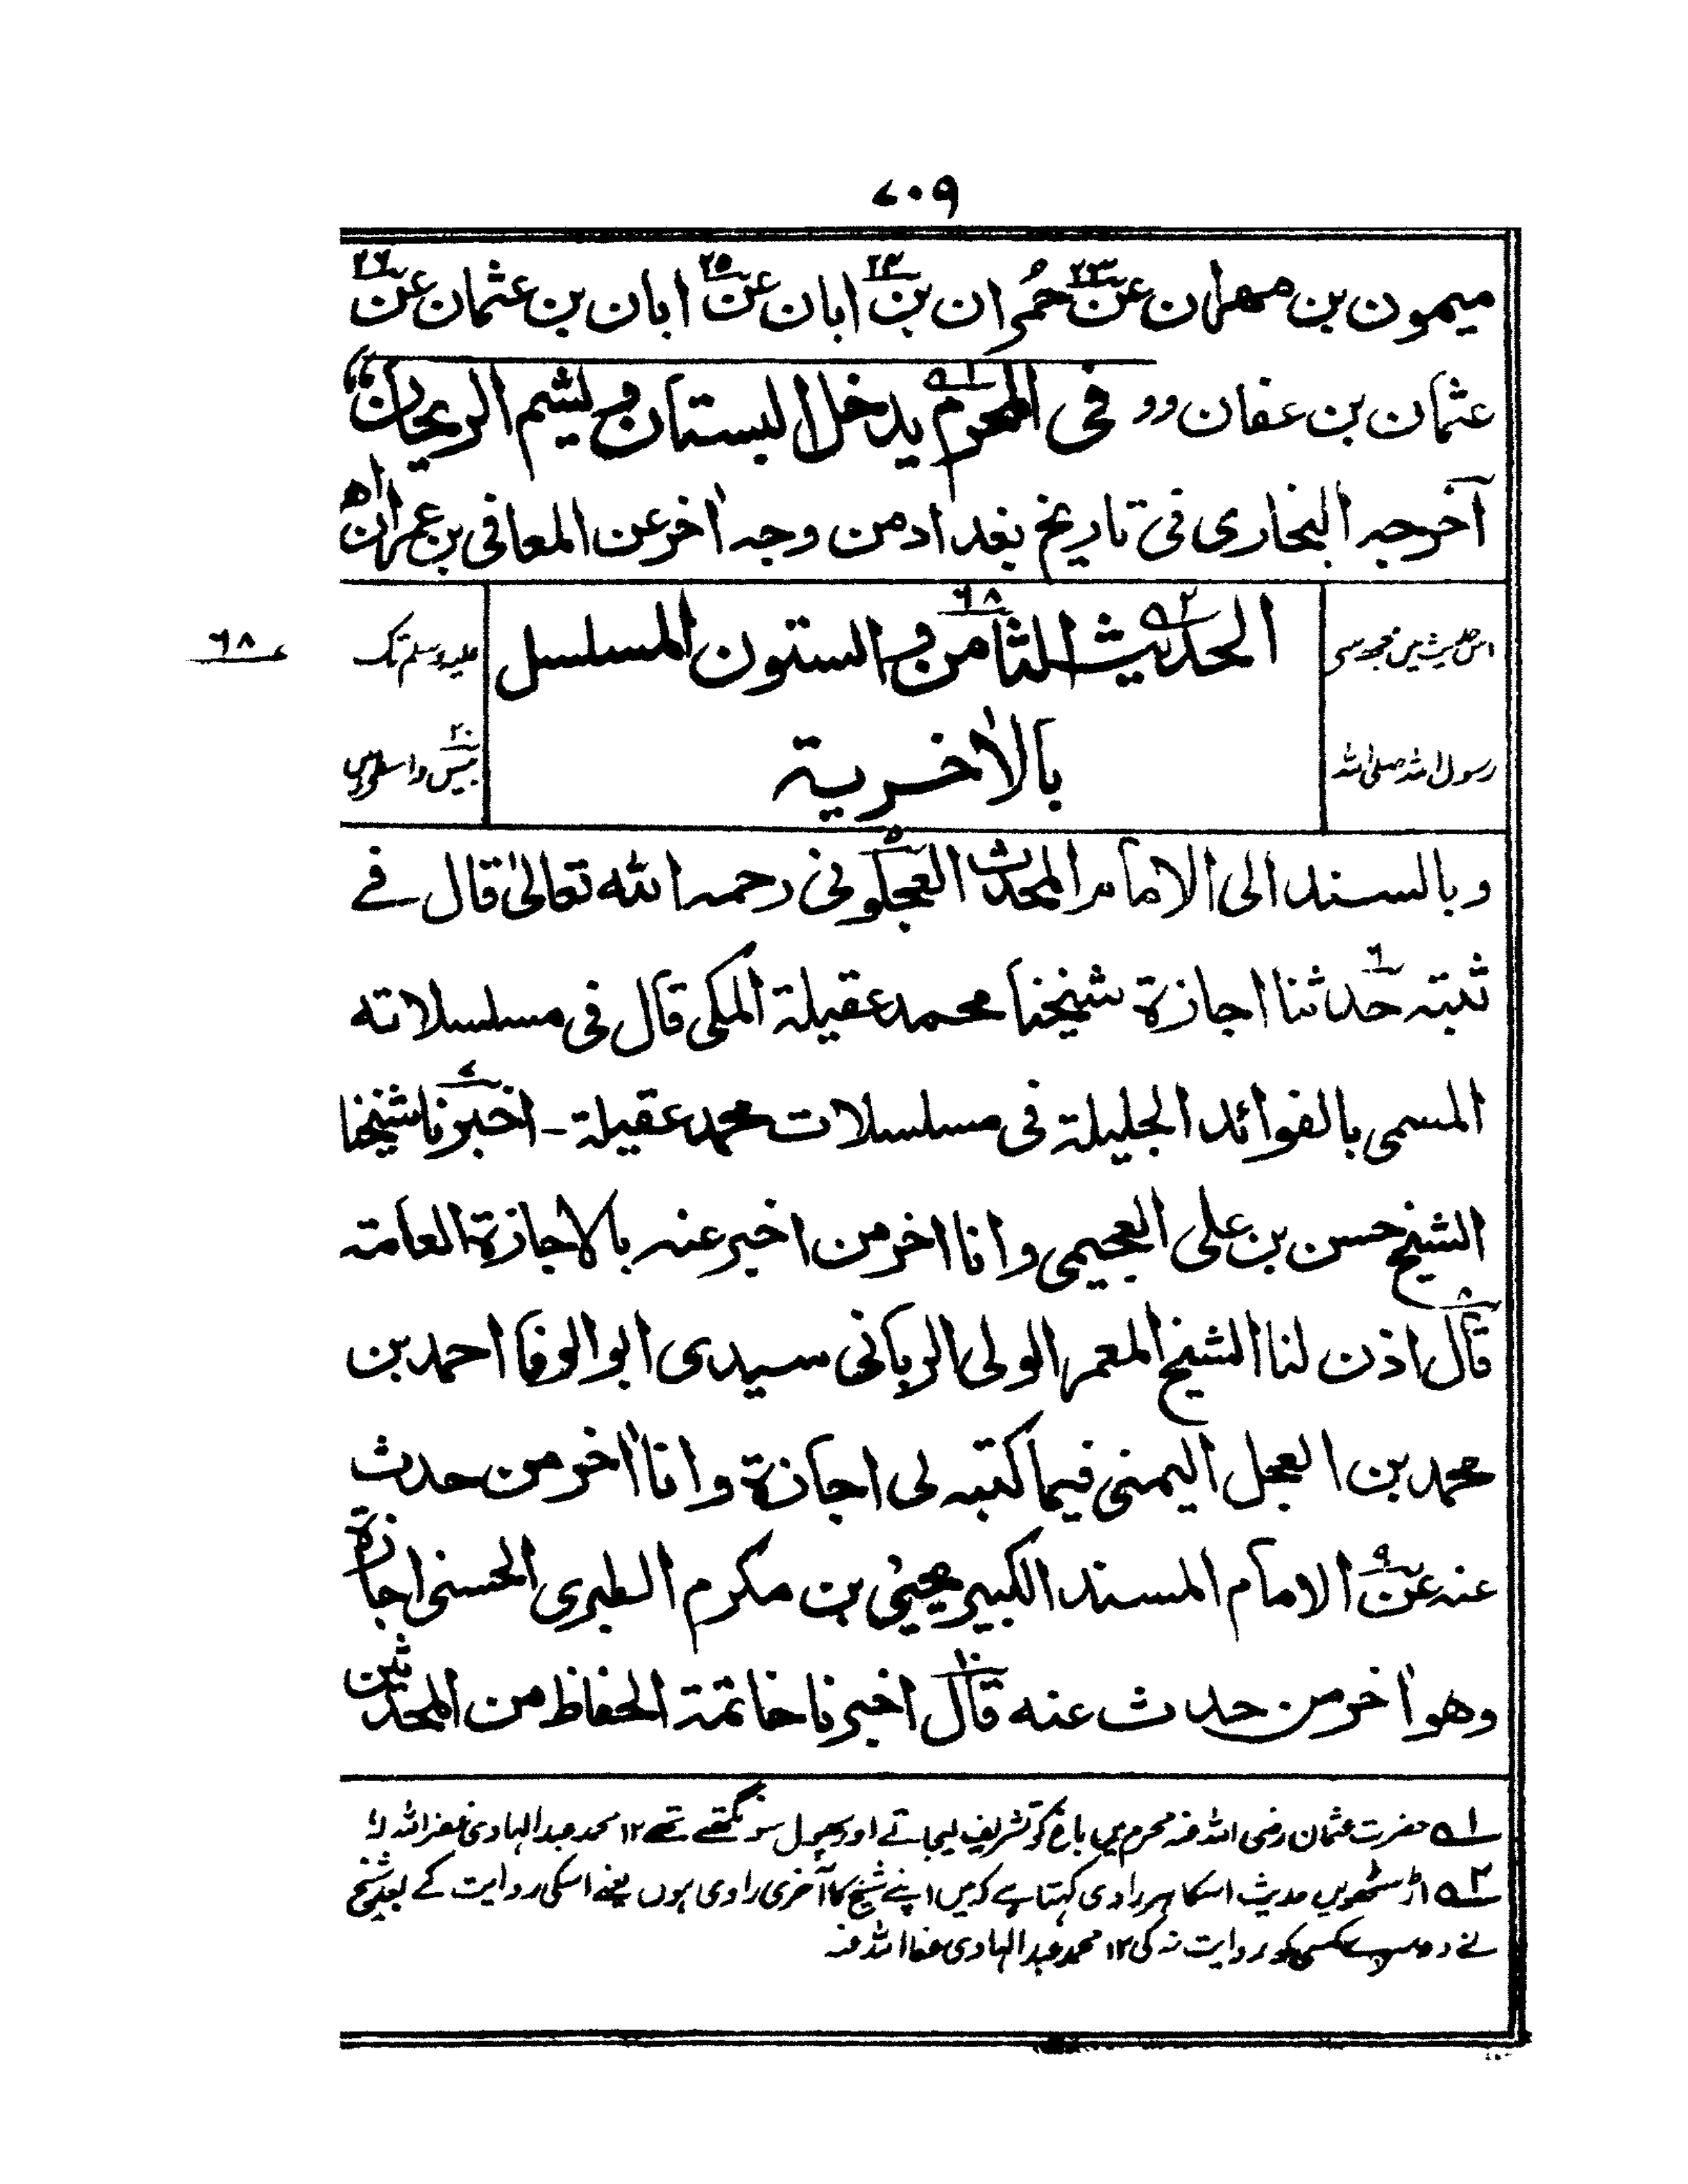 ۷۰۹
میمون بن مهران عن۲۳ حُمران بن۲۴ ابان عن۲۵ ابان بن عثمان عن۲۶
عثمان بن عفان وو فی المحرم۱ یدخل البستان و یشم الریحان،،
آخرجه البخاری فی تاریخ بغداد من وجه اٰخر عن المعافی بن عمران اه
الحدیث۲ الثامن۶۸ و الستون المسلسل
بالاٰخریة
اس حدیث میں مجھ سے
رسول اللہ صلی اللہ
علیہ وسلم تک
۲۰
بیس واسطے ہیں
۶۸
وبالسند الی الامام المحدث العجلونی۵ رحمہ اللّٰہ تعالیٰ قال فے
ثبتہ حدثنا۶ اجازة شیخنا محمد عقیلة المکی قال فی مسلسلاته
المسمی بالفوائد الجلیلة فی مسلسلات محمد عقیلة ـ اخبرنا۷ شیخنا
الشیخ حسن بن علی العجیمی وانا اخر من اخبر عنه بالاجازة العامة
قال۸ اذن لنا الشیخ المعمر الولی الربانی سیدی ابوالوفا احمد بن
محمد بن العجل الیمنی فیما کتبه لی اجازة وانا اٰخر من حدث
عنه عن۹ الامام المسند الکبیر یحییٰ بن مکرم الطبری الحسنی اجازة
وهو اٰخر من حدث عنه قال۱۰ اخبرنا خاتمة الحفاظ من المحدثین
۱ حضرت عثمان رضی اللہ عنہ محرم میں باغ کو تشریف لیجاتے اور پھول سونگھتے تھے ۱۲ محمد عبدالہادی غفراللہ لہٗ
۲ اڑسٹھویں حدیث اسکا ہر راوی کہتا ہے کہ میں اپنے شیخ کا آخری راوی ہوں یعنے اسکی روایت کے بعد شیخ
نے دوسرے کسی کو روایت نہ کی ۱۲ محمد عبدالہادی عفا اللہ عنہ